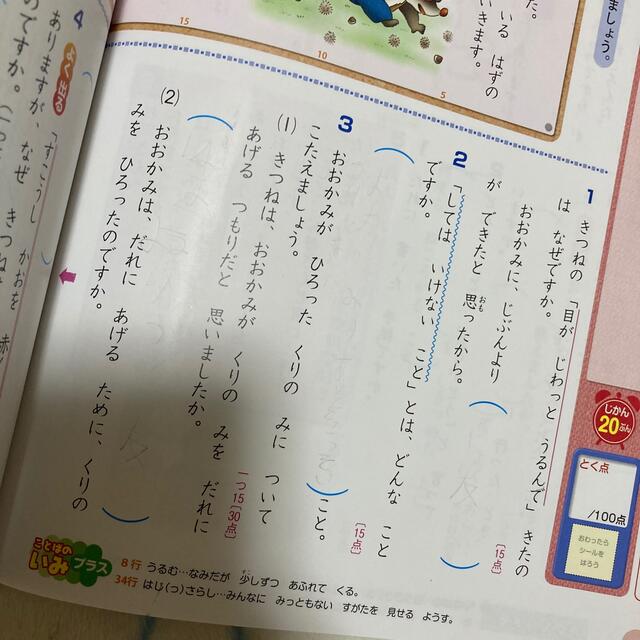 た。
いる はずの
いきます。
5
10
15
ましょう。
1 きつねの 「目が じわっと うるんで」 きたの
は なぜですか。
[15点]
おおかみに、じぶんより ( )
が できたと 思ったから。
おも
2 「しては いけない こと」とは、どんな こと
ですか。
[15点]
( ) こと。
3 おおかみが ひろった くりの みに ついて
こたえましょう。
一つ15[30点]
(1) きつねは、おおかみが くりの みを だれに
あげる つもりだと 思いましたか。
( )
(2) おおかみは、だれに あげる ために、くりの
みを ひろったのですか。
( )
4
よく出る
ありますが、なぜ きつね
のですか。
じかん
20ぷん
とく点
/100点
おわったら
シールを
はろう
ことばの
いみ プラス
8行 うるむ…なみだが 少しずつ あふれて くる。
34行 はじ(っ)さらし…みんなに みっともない すがたを 見せる ようす。